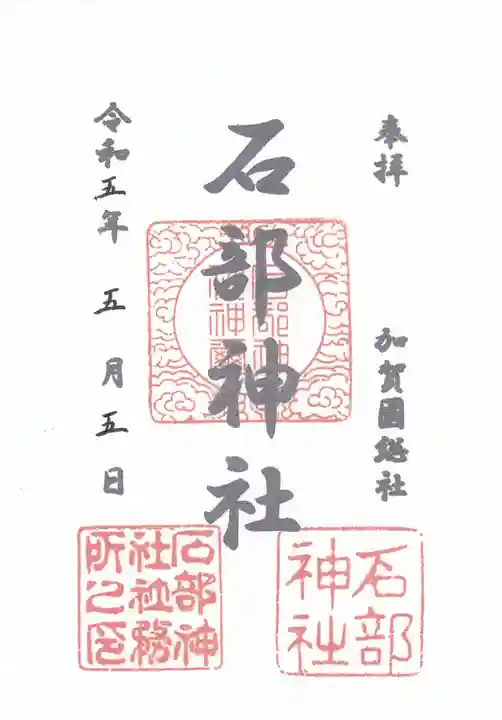 奉拝
加賀國総社
石部神社
令和五年 五月五日
石部神社
石部神社社務所之印